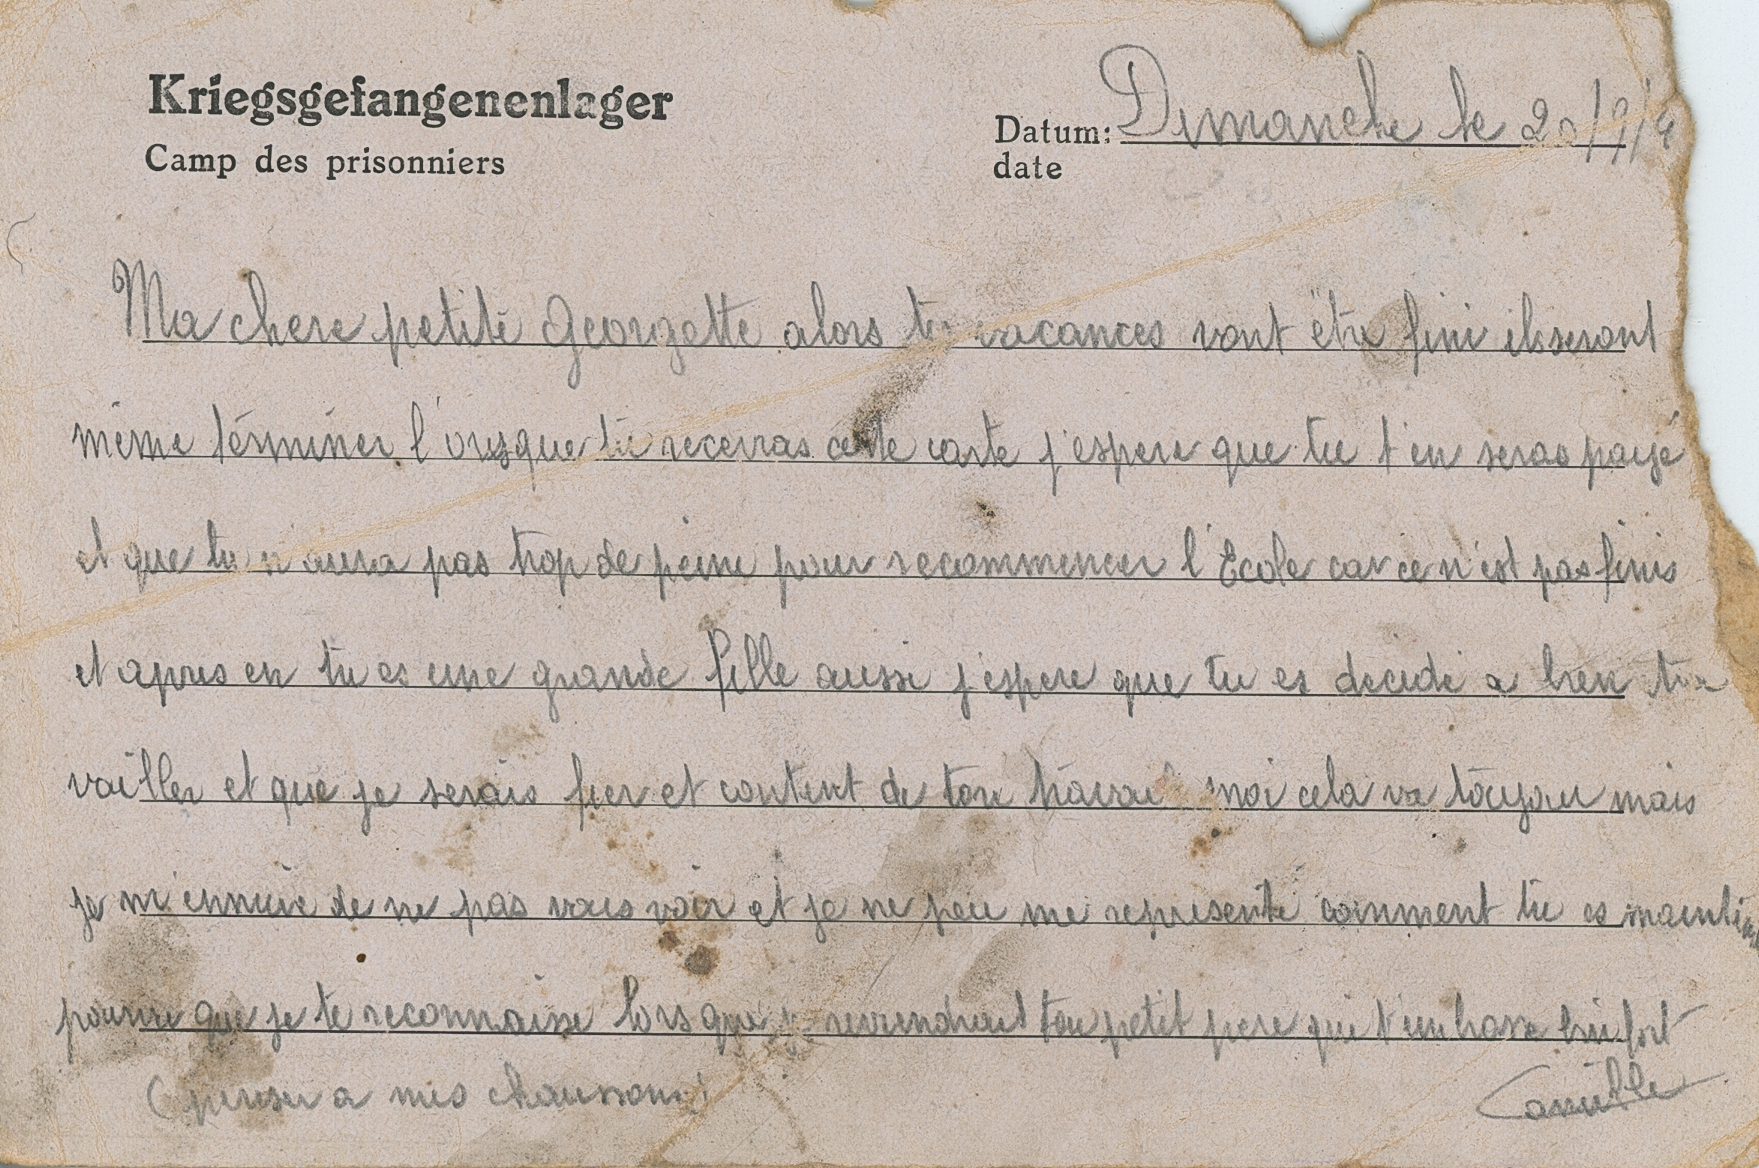 Kriegsgefangenenlager
Camp des prisonniers
Datum: Dimanche le 20/9/4
date
Ma chere petite Georgette alors tes vacances vont être fini ils seront
même términer l'orsque tu recevras cette carte j'espere que tu t'en seras payé
et que tu n'aura pas trop de peine pour recommencer l'Ecole car ce n'est pas finis
et apres en tu es une grande fille aussi j'espere que tu es décidé a bien tra
vailler et que je serais fier et content de ton travai moi cela va toujour mais
je m'ennuie de ne pas vous voir et je ne peu me représenté comment tu es maintenant
pourvu que je te reconnaisse lors que je reviendrait ton petit pere qui t'embrasse bien fort
(penser a mes chaussons) Camille